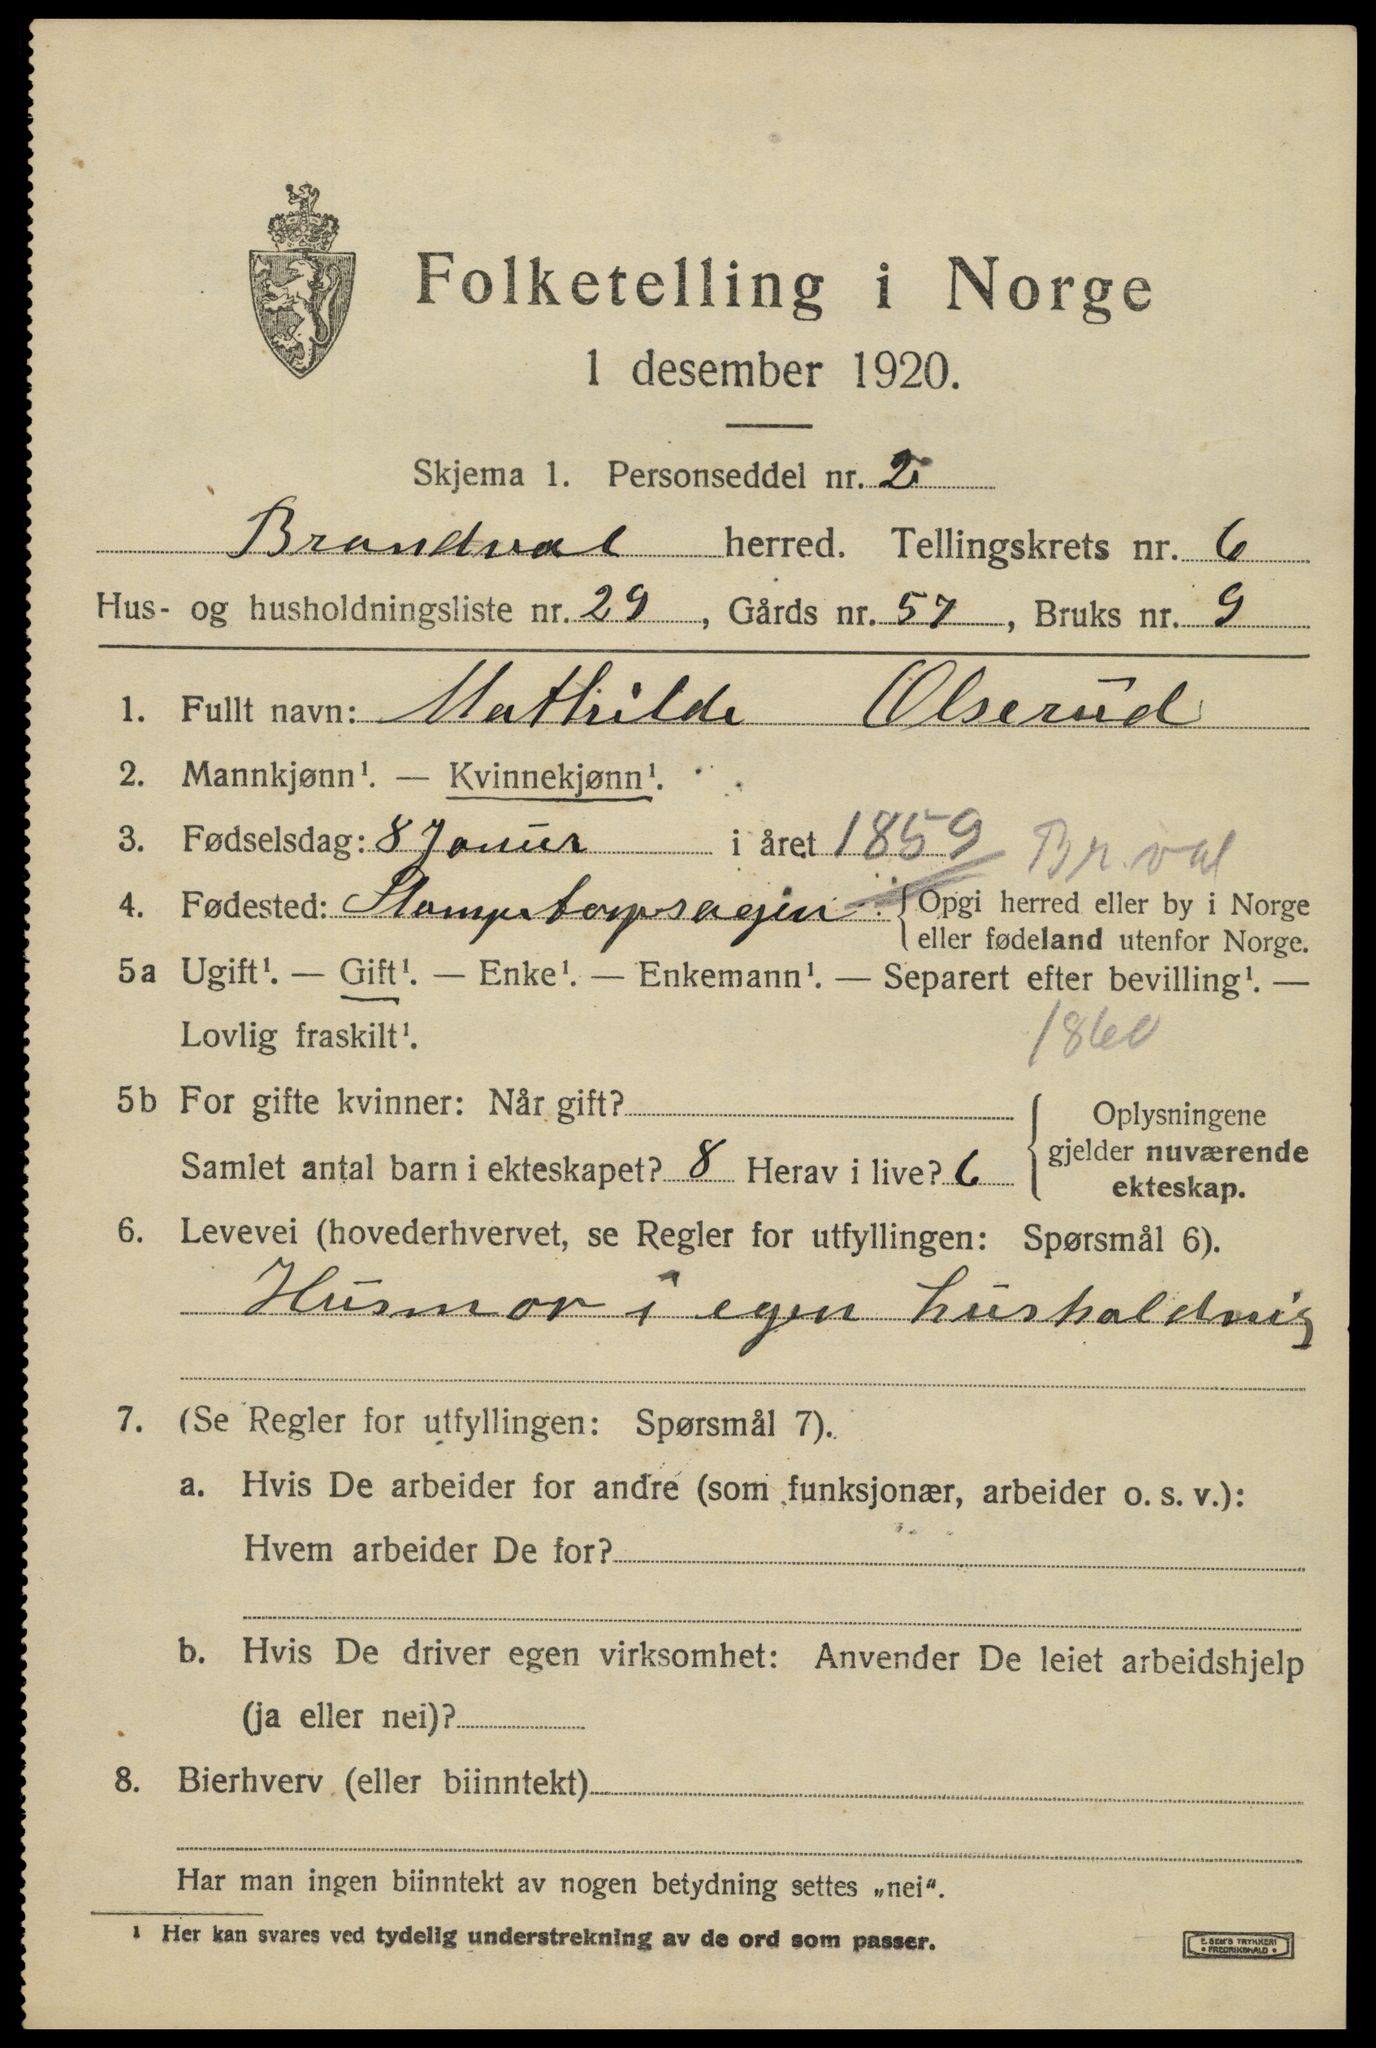 Folketelling i Norge
1 desember 1920.
Skjema 1. Personseddel nr. 2
Brandval herred. Tellingskrets nr. 6
Hus- og husholdningsliste nr. 29, Gårds nr. 57, Bruks nr. 9
1. Fullt navn: Mathilde Olserud
2. Mannkjønn¹. — Kvinnekjønn¹.
3. Fødselsdag: 8 Januar i året 1859 Br.val
4. Fødested: Stompertorpsagen { Opgi herred eller by i Norge
eller fødeland utenfor Norge.
5a Ugift¹. — Gift¹. — Enke¹. — Enkemann¹. — Separert efter bevilling¹. —
Lovlig fraskilt¹. 1860
5b For gifte kvinner: Når gift?
Samlet antal barn i ekteskapet? 8 Herav i live? 6
Oplysningene
gjelder nuværende
ekteskap.
6. Levevei (hovederhvervet, se Regler for utfyllingen: Spørsmål 6).
Husmor i egen husholdnig
7. (Se Regler for utfyllingen: Spørsmål 7).
a. Hvis De arbeider for andre (som funksjonær, arbeider o. s. v.):
Hvem arbeider De for?
b. Hvis De driver egen virksomhet: Anvender De leiet arbeidshjelp
(ja eller nei)?
8. Bierhverv (eller biinntekt)
Har man ingen biinntekt av nogen betydning settes „nei“.
¹ Her kan svares ved tydelig understrekning av de ord som passer.
E. SEM'S TRYKKERI
FREDRIKSHALD